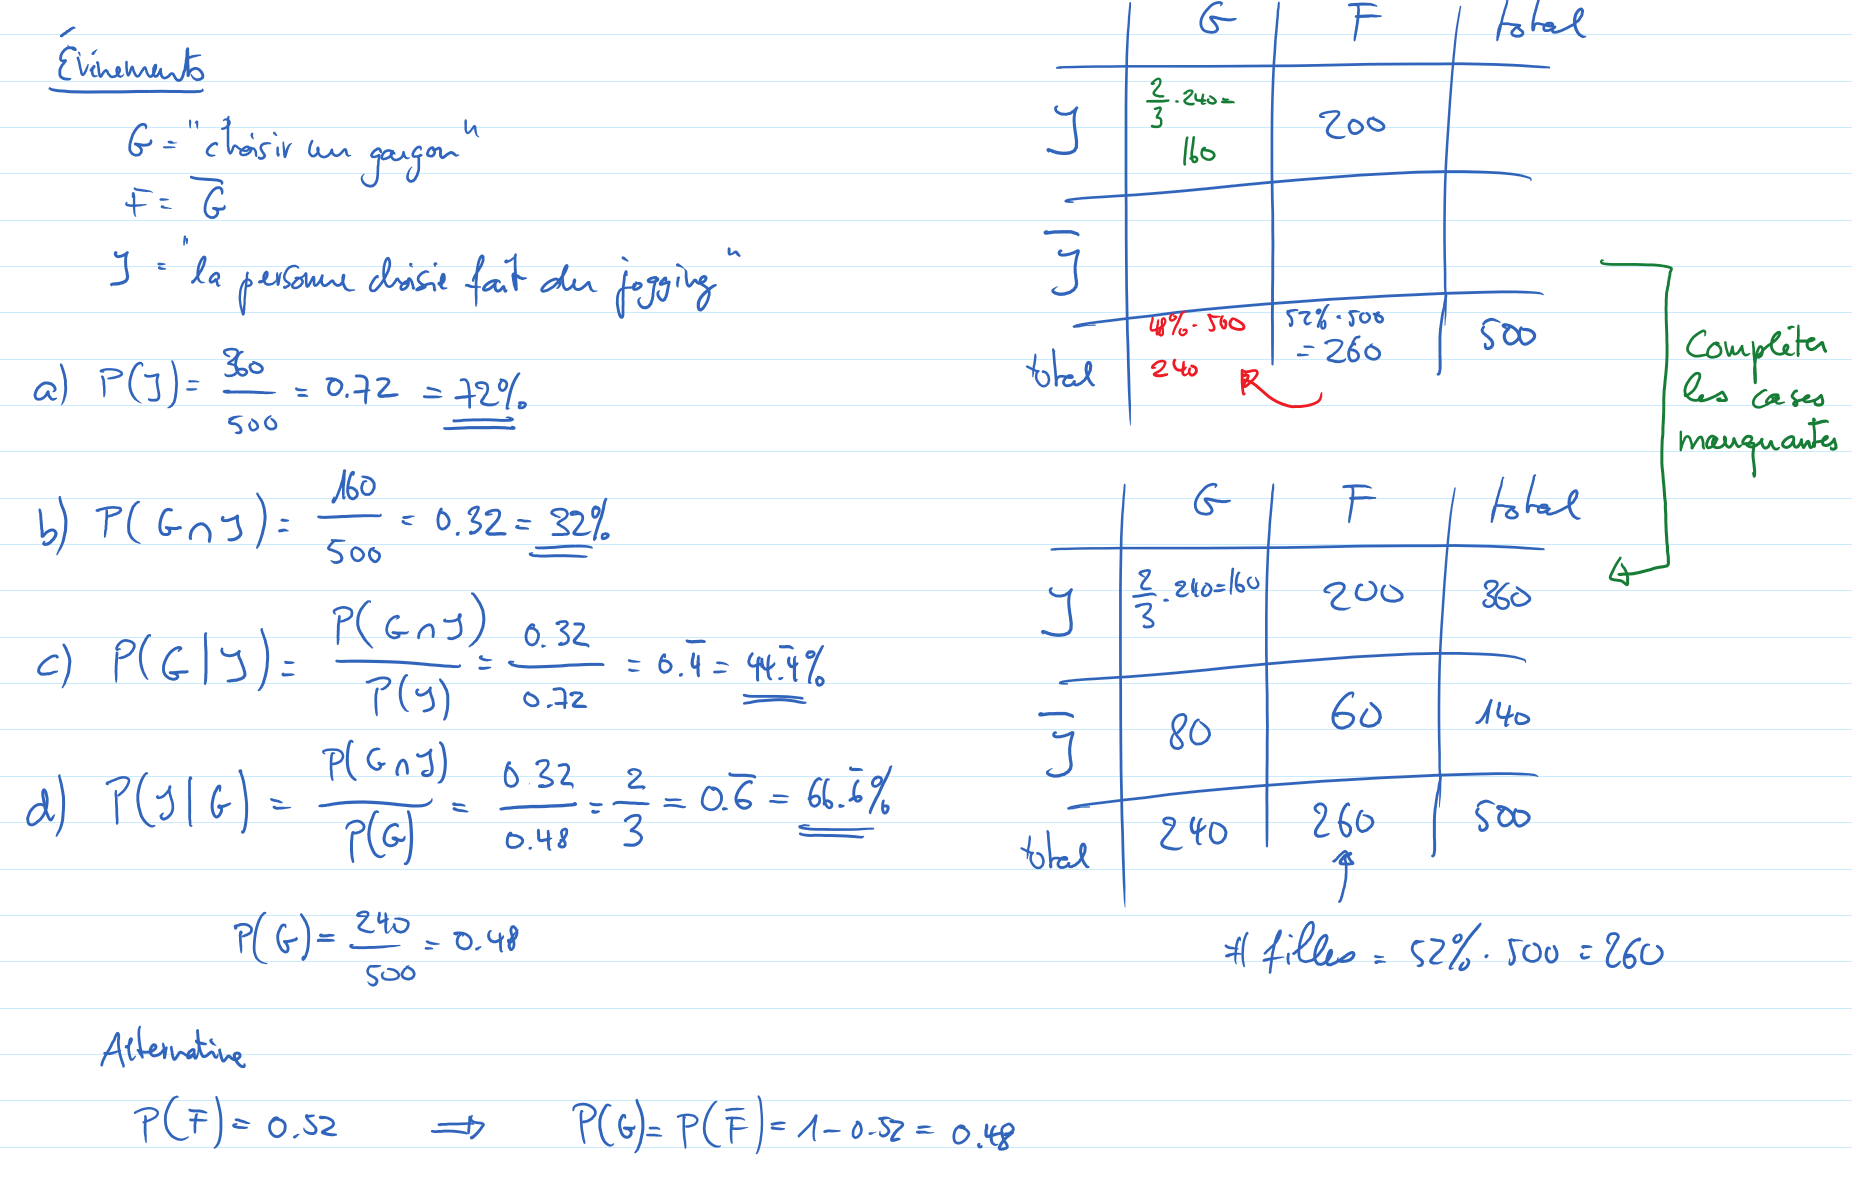 Événements
G = "choisir un garçon"
F = G̅
J = "la personne choisie fait du jogging"
a) P(J) = 360/500 = 0.72 = 72%
b) P(G∩J) = 160/500 = 0.32 = 32%
c) P(G|J) = P(G∩J)/P(J) = 0.32/0.72 = 0.4̅ = 44.4̅%
d) P(J|G) = P(G∩J)/P(G) = 0.32/0.48 = 2/3 = 0.6̅ = 66.6̅%
P(G) = 240/500 = 0.48
Alternative
P(F) = 0.52 ⟹ P(G) = P(F̅) = 1 - 0.52 = 0.48
G F total
J 2/3 · 240 = 160 200
J̅
total 48% · 500 240 52% · 500 = 260 500
Compléter
les cases
manquantes
G F total
J 2/3 · 240 = 160 200 360
J̅ 80 60 140
total 240 260 500
# filles = 52% · 500 = 260